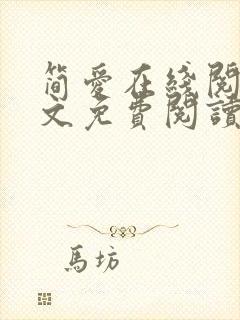 简愛在綫閱
文免費閱讀
馬坊